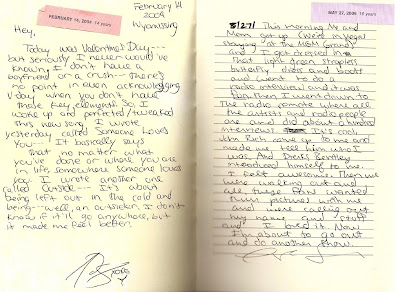 FEBRUARY 14, 2004 14 years
February 14
2004
Wyomissing
Hey,
Today was Valentine's Day---
but seriously I never would've
known. I don't have a
boyfriend or a crush--- There's
no point in even acknowledging
V-day when you don't have
those key elements. So, I
woke up and perfected/tweaked
this new song I wrote
yesterday called Someone Loves
You--- It basically says
that no matter what
you've done or where you are
in life, somewhere someone loves
you. I wrote another one
called Outside--- It's about
being left out in the cold and
being--well, an outsider. I don't
know if it'll go anywhere, but
it made me feel better.
MAY 27, 2006 16 years
5/27/ This morning Me and
Mom got up (We're in Vegas
staying at the MGM Grand)
and I got dressed in
that light green strapless
butterfly dress and boots
and went to do a
radio interview and it was
fun. Then I went down to
the radio remote where all
the artists and radio people
are and did about a
interviews. It's cool,
John Rich came up to me and
made me tell him who I
was. And Dierks Bentley
introduced himself to me.
I felt awesome. Then we
were walking out and
all these fans wanted
their pictures with me
and were calling out
my name and stuff
and I loved it. Now
I'm about to go out
and do another show.